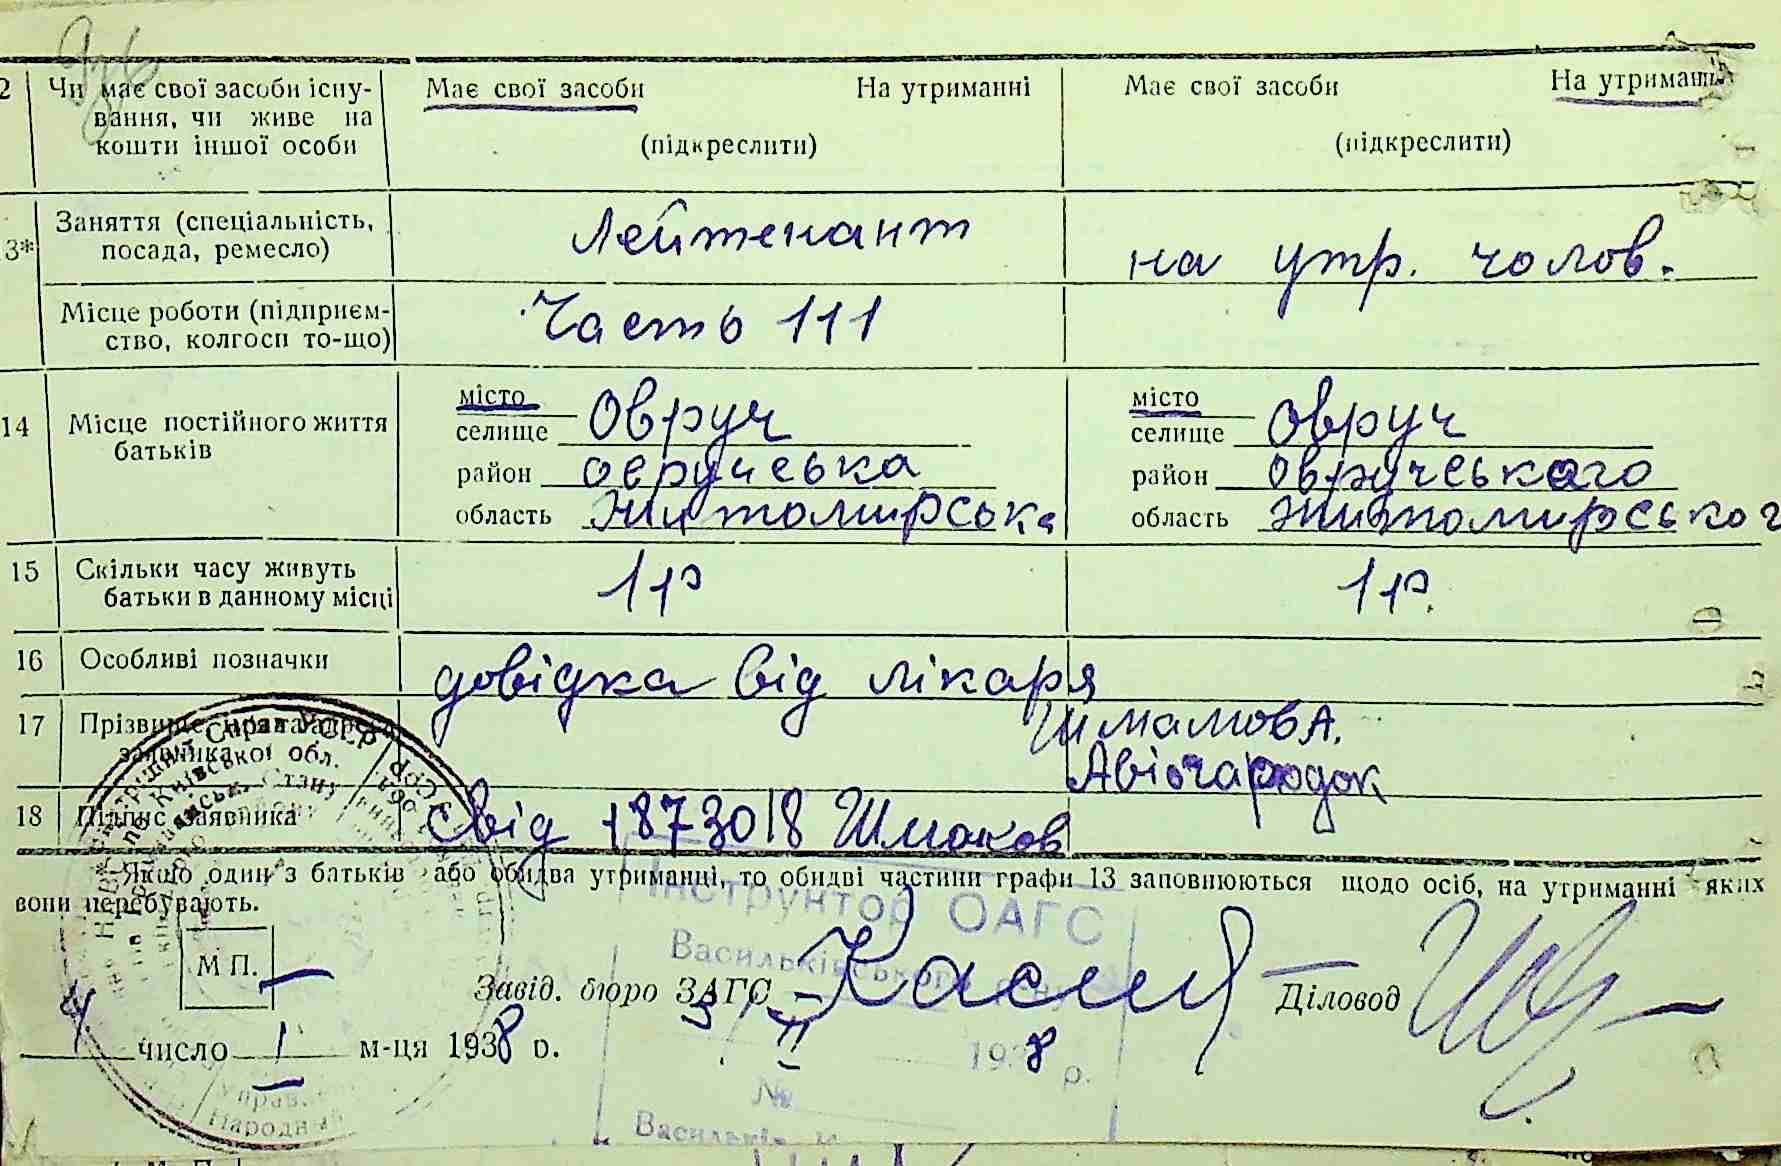 2 Чи має свої засоби існу- Має свої засоби На утриманні Має свої засоби На утриманні
вання, чи живе на
кошти іншої особи (підкреслити) (підкреслити)
3* Заняття (спеціальність, Лейтенант на утр. чолов.
посада, ремесло)
Місце роботи (підприєм- Часть 111
ство, колгосп то-що)
14 Місце постійного життя місто місто
батьків селище Овруч селище Овруч
район овручська район овручського
область Житомирська область Житомирського
15 Скільки часу живуть 1 р 1 р.
батьки в данному місці
16 Особливі позначки довідка від лікаря
17 Прізвище,
заявника Авіогародок
18 Підпис заявника Свід 1873018 Шмаков
Якщо один з батьків або обидва утриманні, то обидві частини графи 13 заповнюються щодо осіб, на утриманні яких
вони перебувають.
Інструктор ОАГС
Васильківського
М П.
Завід. бюро ЗАГС Діловод
4 число I м-ця 1938 р.
3 II 1938 р.
№
Народний